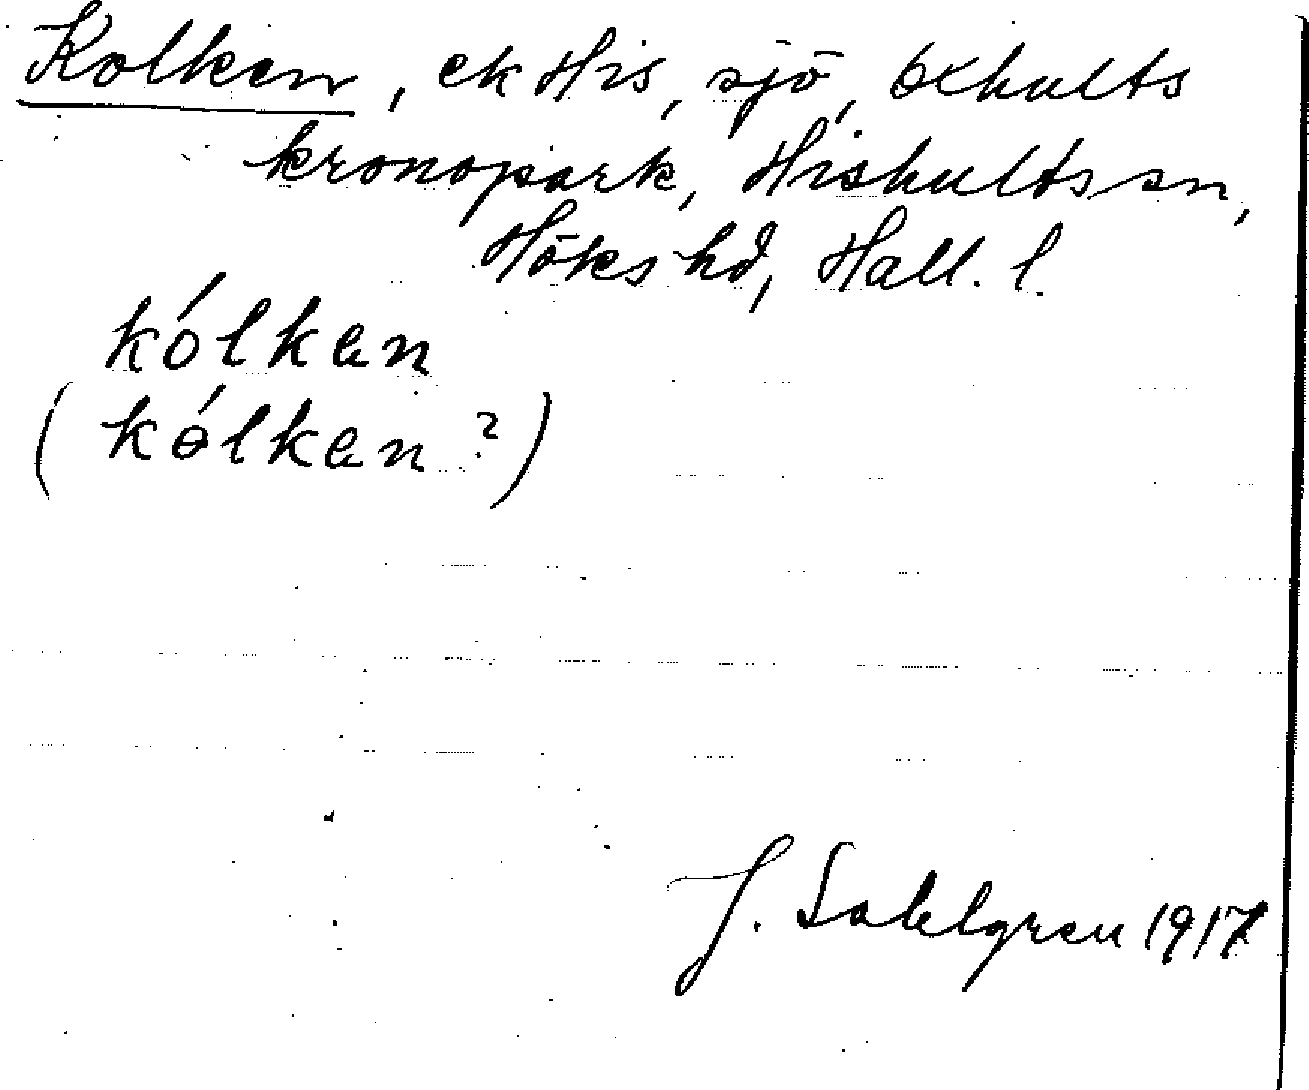 Kolken, ek His, sjö, Oxhults
kronopark, Hishults sn,
Höks hd, Hall. l.
kólkən
(kólkən?)
J. Sahlgren 1917